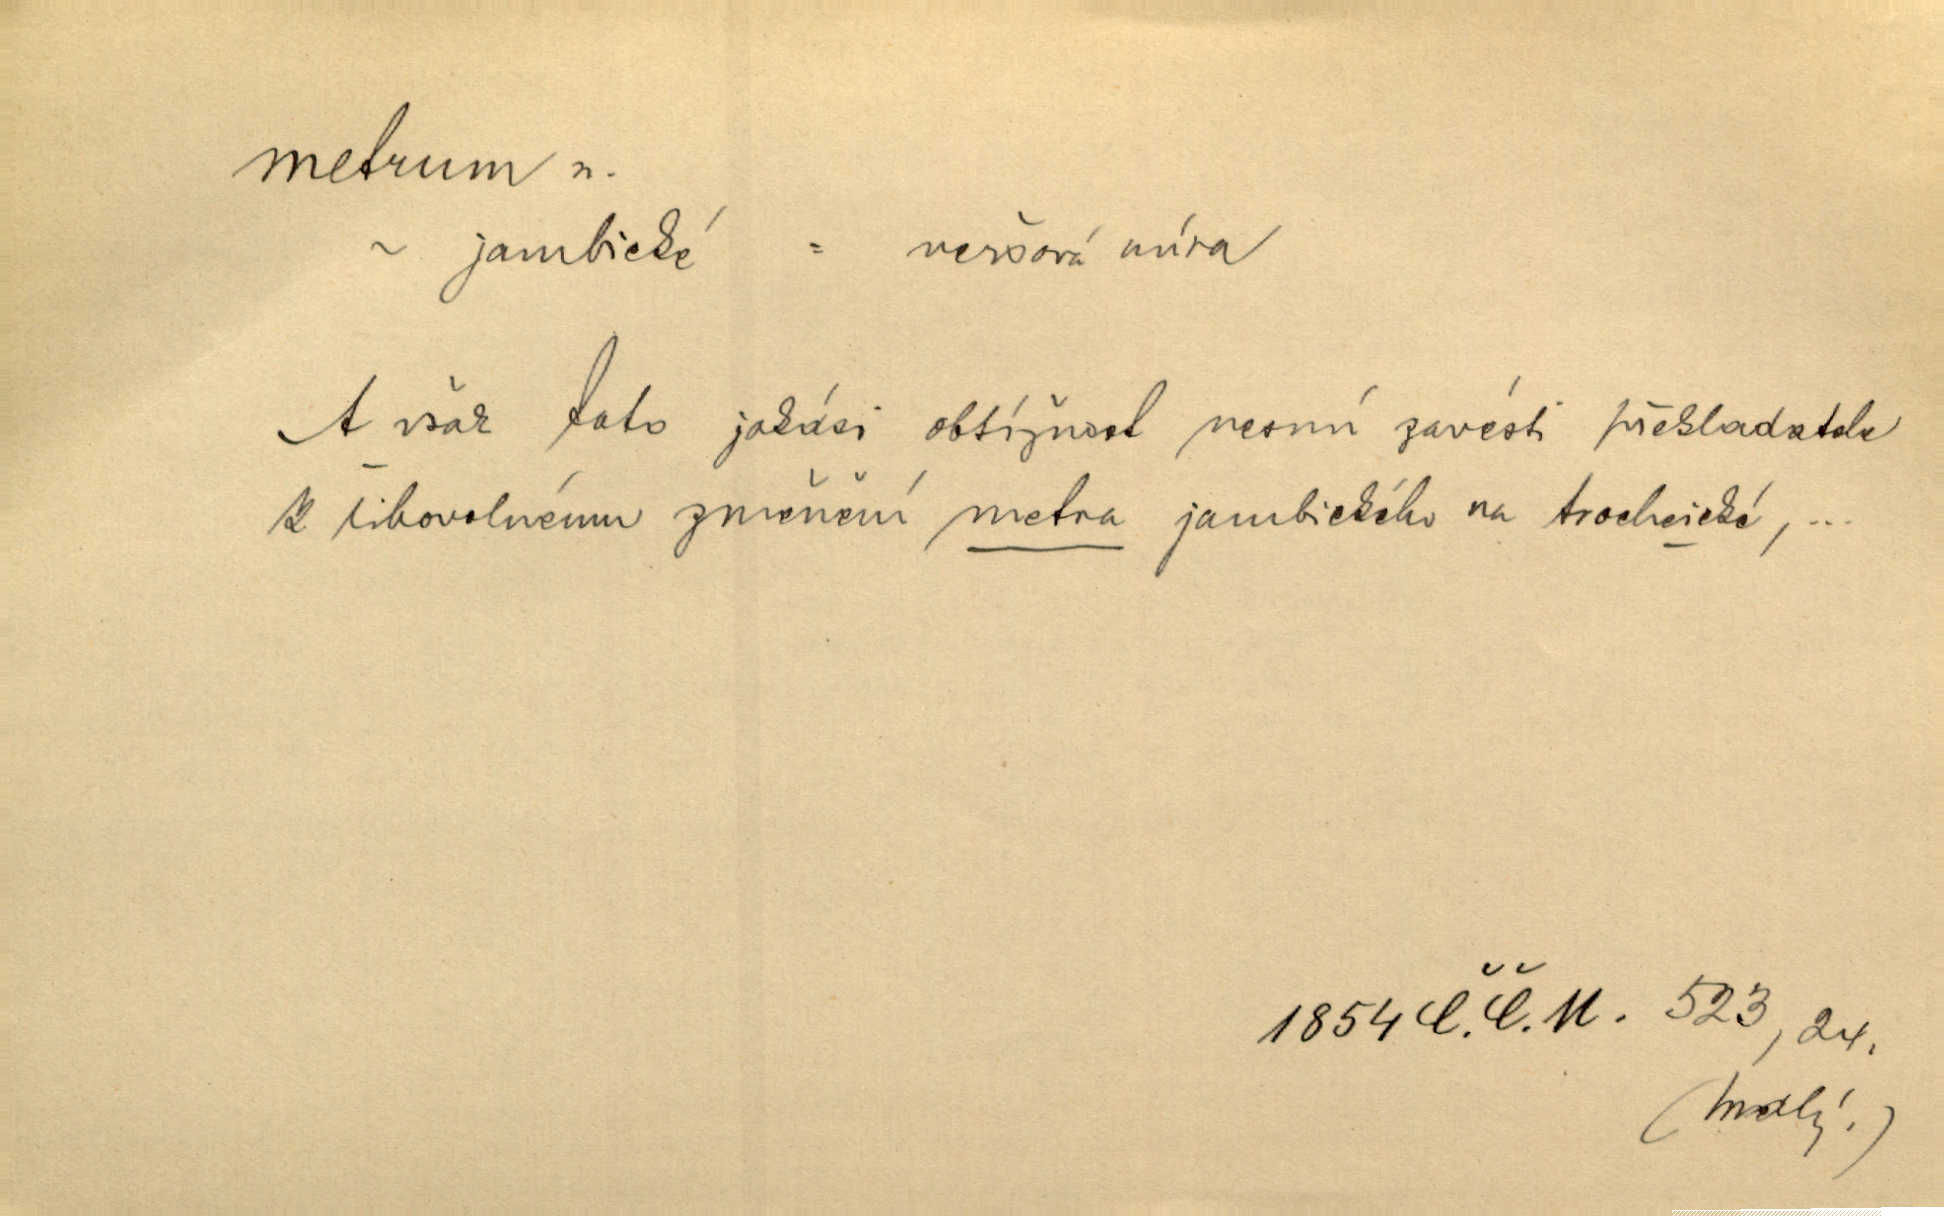 metrum n.
~ jambické = veršová míra
A však tato jakási obtížnost nesmí zavésti překladatele
k libovolnému změnění metra jambického na trocheické, ...
1854 Č.Č.M. 523, 24.
(Malý.)